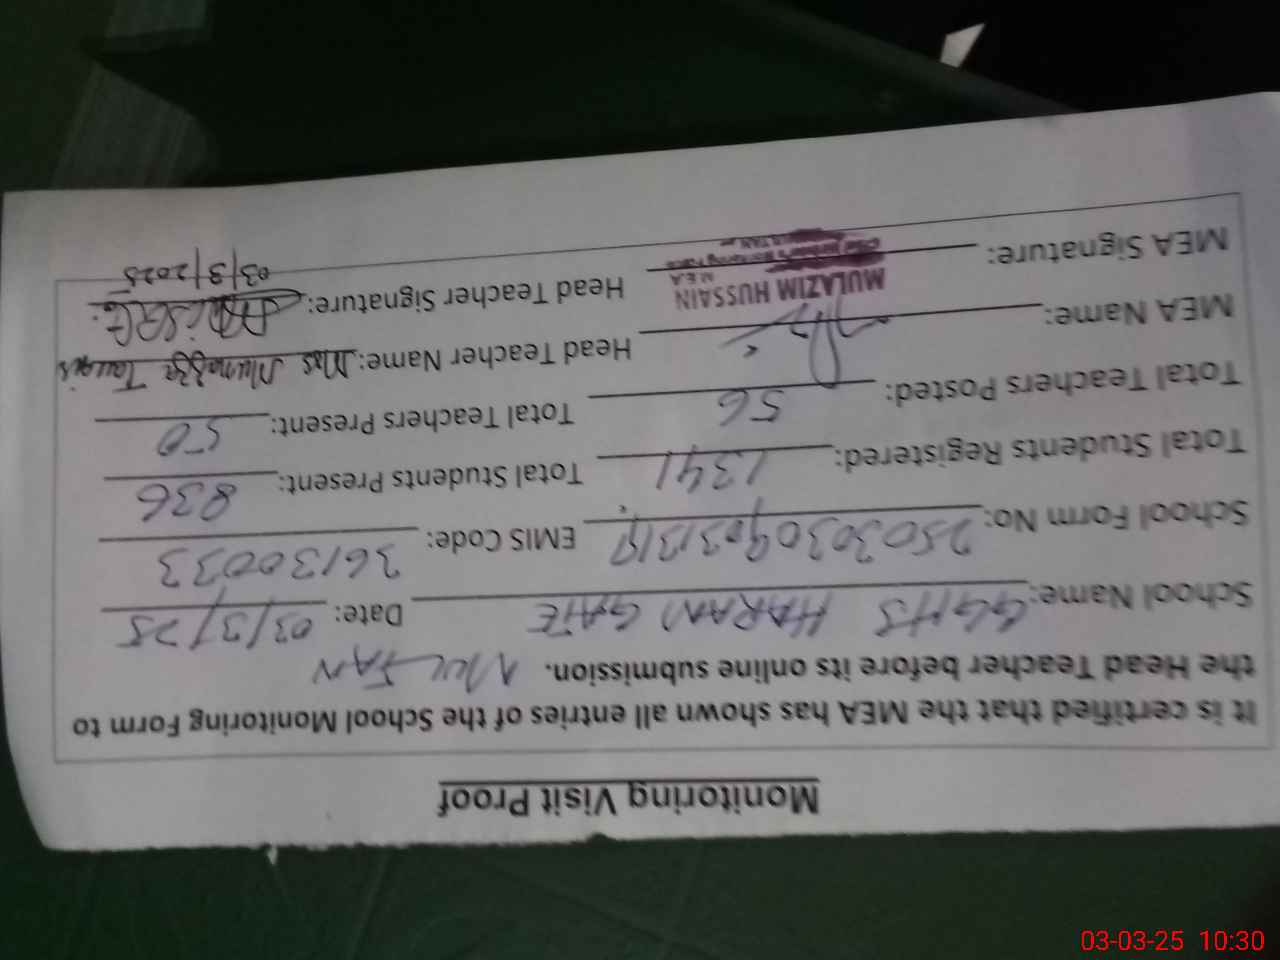 Monitoring Visit Proof
It is certified that the MEA has shown all entries of the School Monitoring Form to
the Head Teacher before its online submission. MULTAN
School Name: GGHS HARAM GATE Date: 03/3/25
School Form No: EMIS Code: 36130033
Total Students Registered: 1341 Total Students Present: 836
Total Teachers Posted: 56 Total Teachers Present: 50
MEA Name: Head Teacher Name: Mrs Mumazza
MEA Signature: MULAZIM HUSSAIN Head Teacher Signature:
M.E.A
03/3/2025
03-03-25 10:30